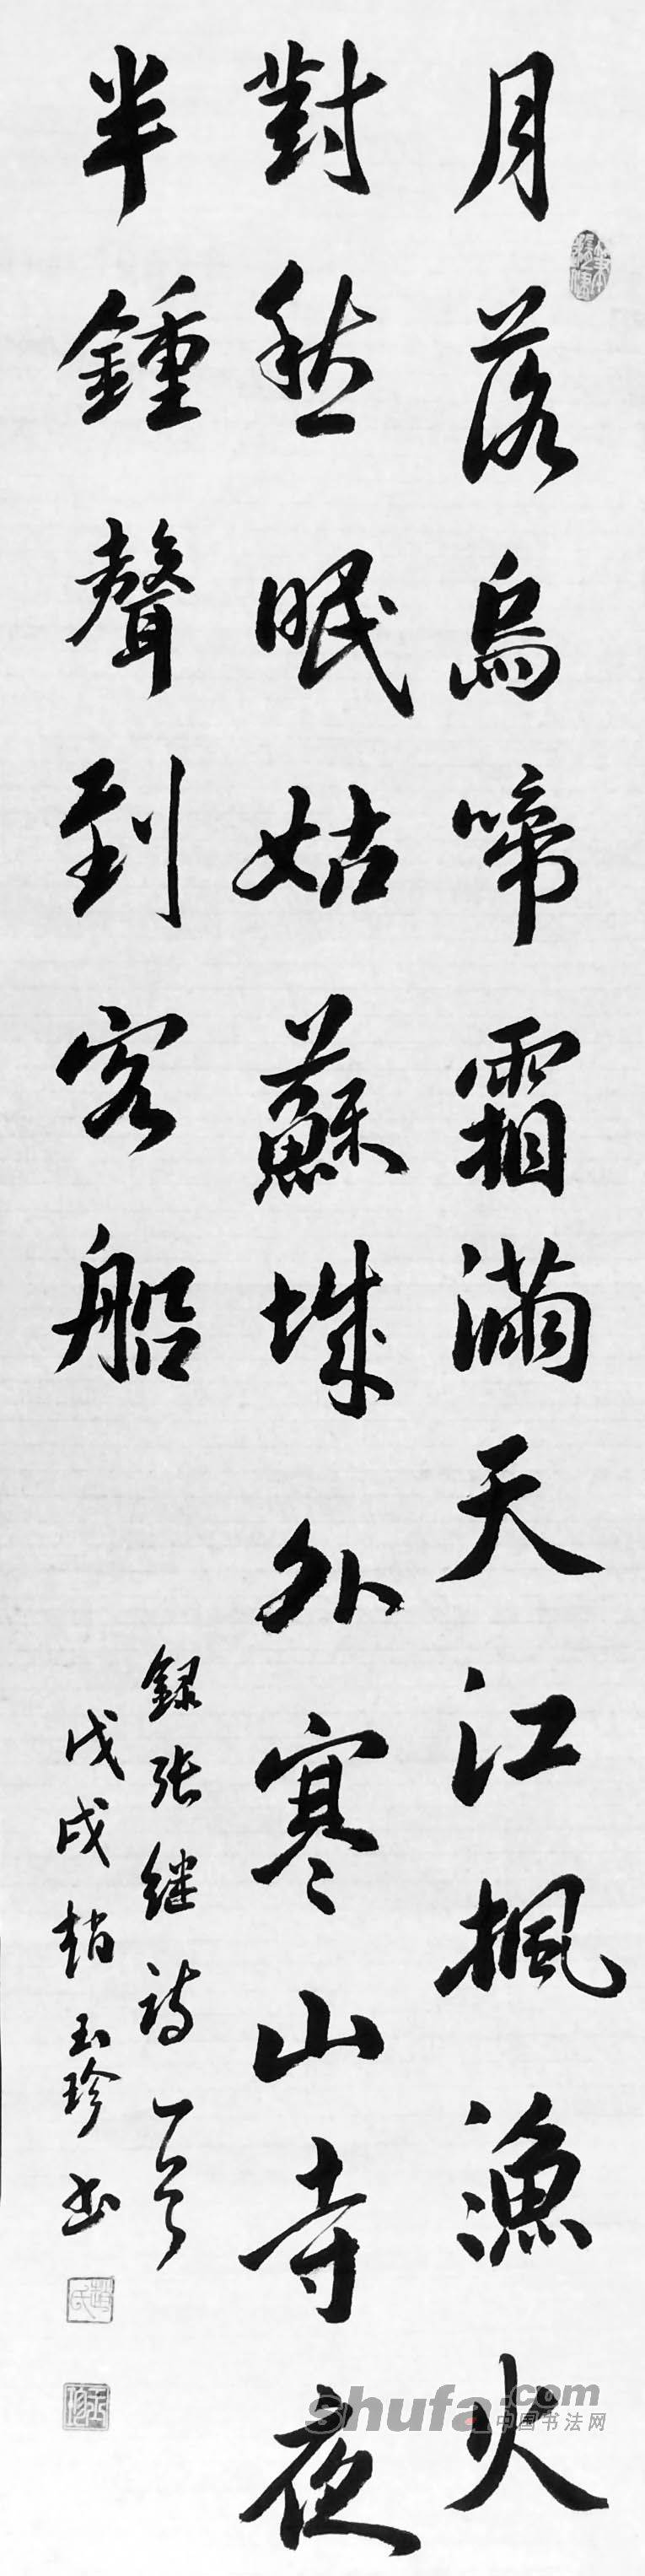 月落烏啼霜滿天江楓漁火
對愁眠姑蘇城外寒山寺夜
半鍾聲到客船
録张继詩一首
戊戌趙玉珍书
趙氏
shufa.com
中国书法网